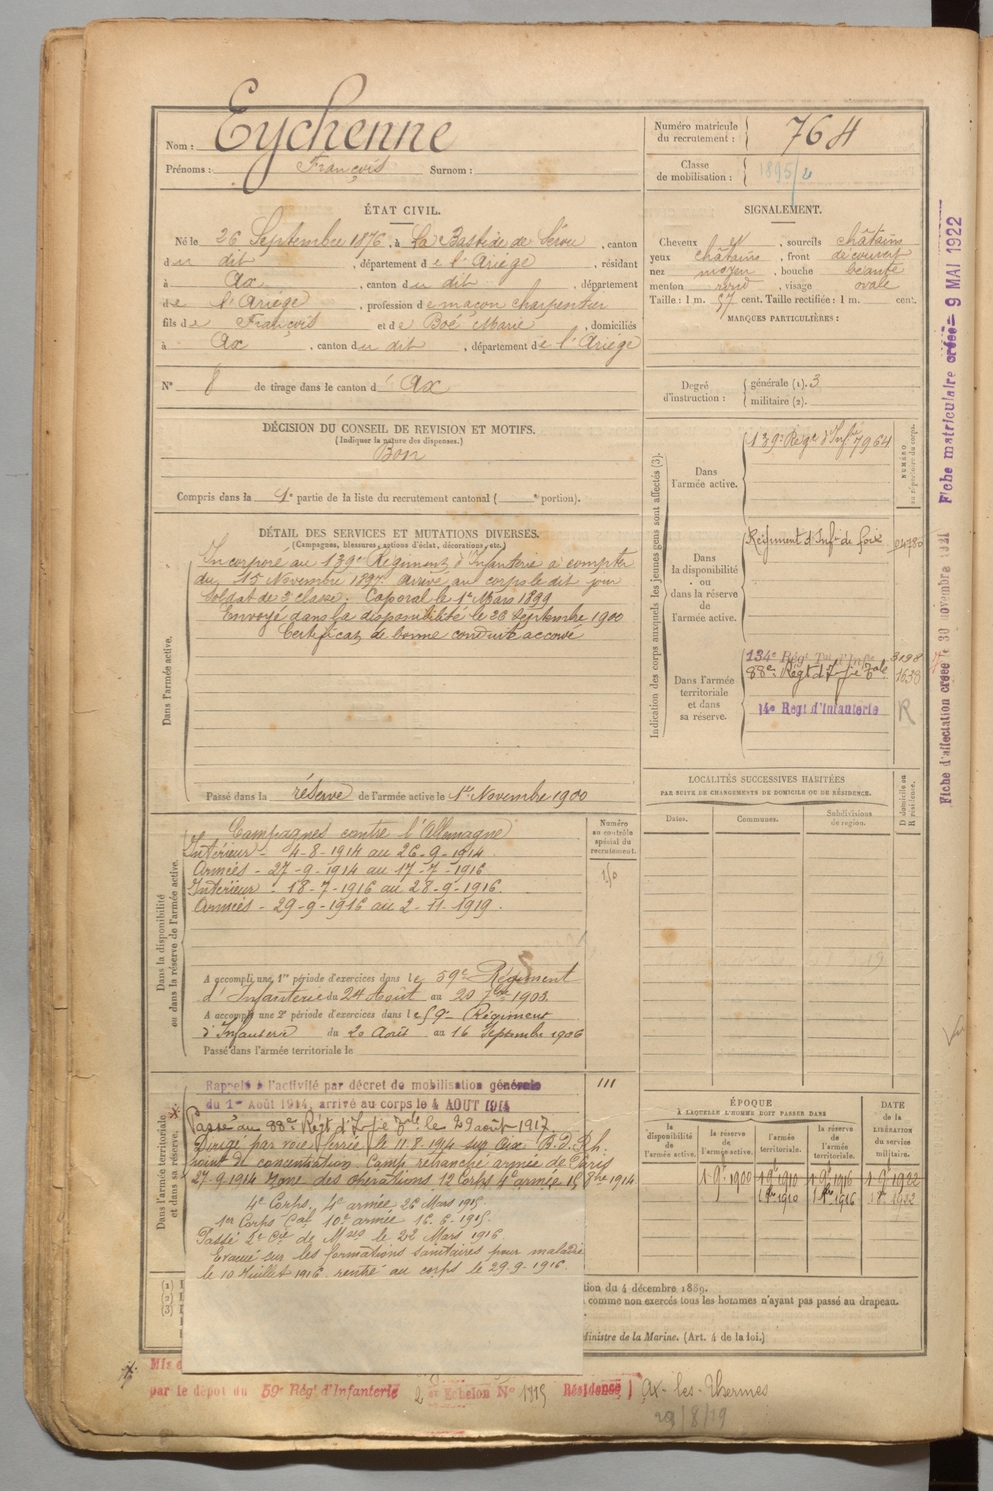 Nom : Eychenne
Prénoms : François Surnom :
Numéro matricule du recrutement : 764
Classe de mobilisation : 1895/2
ÉTAT CIVIL.
Né le 26 Septembre 1876, à La Bastide de Sérou, canton
du dit, département de l'Ariège, résidant
à Ax, canton du dit, département
de l'Ariège, profession de maçon charpentier
fils de François et de Boé Marie, domiciliés
à Ax, canton du dit, département de l'Ariège
N° 8 de tirage dans le canton d' Ax
SIGNALEMENT.
Cheveux et, sourcils châtains
yeux châtains, front découvert
nez moyen, bouche béante
menton rond, visage ovale
Taille : 1 m. 57 cent. Taille rectifiée : 1 m. cent.
MARQUES PARTICULIÈRES :
Degré d'instruction : générale (1). 3
militaire (2).
DÉCISION DU CONSEIL DE REVISION ET MOTIFS.
(Indiquer la nature des dispenses.)
Bon
Compris dans la 1e partie de la liste du recrutement cantonal ( e portion).
DÉTAIL DES SERVICES ET MUTATIONS DIVERSES.
(Campagnes, blessures, actions d'éclat, décorations, etc.)
Dans l'armée active.
Incorporé au 139e Régiment d'Infanterie à compter
du 15 Novembre 1897. Arrivé au corps le dit jour
Soldat de 2e classe. Caporal le 1er Mars 1899
Envoyé dans la disponibilité le 23 Septembre 1900
Certificat de bonne conduite accordé
Passé dans la réserve de l'armée active le 1er Novembre 1900
Indication des corps auxquels les jeunes gens sont affectés (3).
NUMÉRO au répertoire du corps.
Dans l'armée active.
139e Régt d'Infie 7964
Dans la disponibilité ou dans la réserve de l'armée active.
Régiment d'Infie de foix 04780
Dans l'armée territoriale et dans sa réserve.
134e Régt Tal d'Infie 3198
88e Régt d'Infie Tale 1638
14e Regt d'Infanterie R
LOCALITÉS SUCCESSIVES HABITÉES
PAR SUITE DE CHANGEMENTS DE DOMICILE OU DE RÉSIDENCE.
Dates. Communes. Subdivisions de région. D domicile ou R résidence.
Dans la disponibilité ou dans la réserve de l'armée active.
Numéro au contrôle spécial du recrutement.
Campagnes contre l'Allemagne
Intérieur - 4-8-1914 au 26-9-1914
Armées - 27-9-1914 au 17-7-1916
Intérieur - 18-7-1916 au 28-9-1916.
Armées - 29-9-1916 au 2-11-1919.
A accompli une 1re période d'exercices dans le 59e Régiment
d'Infanterie du 24 Août au 20 7bre 1903.
A accompli une 2e période d'exercices dans le 59e Régiment
d'Infanterie du 20 Août au 16 Septembre 1906
Passé dans l'armée territoriale le
Dans l'armée territoriale et dans sa réserve.
Rappelé à l'activité par décret de mobilisation générale
du 1er Août 1914, arrivé au corps le 4 AOUT 1914
Passé au 88e Régt d'Infie Tale le 29 août 1917.
Dirigé par voie ferrée le 11.8.1914 sur Aix B.d.Rh.
point de concentration. Camp retranché armée de Paris
27.9.1914 Zone des opérations 12 Corps 4e armée 15 8bre 1914
4e Corps. 4e armée 26 Mars 1915.
1er Corps Cal 10e armée 16.6-1915
Passé 2e Cie de Mses le 22 Mars 1916.
Evacué sur les formations sanitaires pour maladie
le 10 Juillet 1916 rentré au corps le 29.9-1916.
III
ÉPOQUE
À LAQUELLE L'HOMME DOIT PASSER DANS
la disponibilité de l'armée active. la réserve de l'armée active. l'armée territoriale. la réserve de l'armée territoriale. DATE de la LIBÉRATION du service militaire.
1 9bre 1900 1 9bre 1910 1 9bre 1916 1 9bre 1922
1 8bre 1910 1 8bre 1916 1 8bre 1922
(1)
(2)
(3)
tion du 4 décembre 1889.
comme non exercés tous les hommes n'ayant pas passé au drapeau.
Ministre de la Marine. (Art. 4 de la loi.)
Mis e
par le dépot du 59e Régt d'Infanterie 2 Echelon N° 1115 Résidence Ax-les-Thermes
29/8/19
Fiche d'affectation créée le 30 novembre 1921 Fiche matriculaire créée 9 MAI 1922